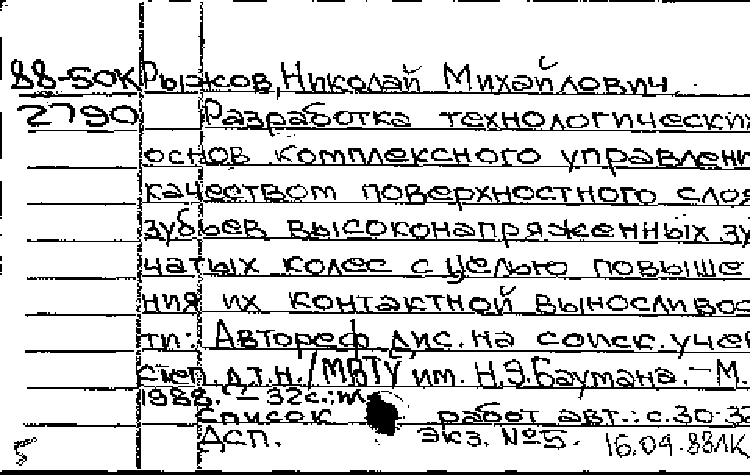 88-50К Рыжов, Николай Михайлович.
2790 Разработка технологических
основ комплексного управлени
качеством поверхностного слоя
зубьев высоконапряженных зу
чатых колес с целью повыше
ния их контактной выносливос
ти: Автореф дис. на соиск. учен
степ. д.т.н. / МВТУ им. Н.Э. Баумана. – М.
1988. – 32с.: ил
Список работ авт.: с. 30-3
ДСП. экз. №5. 16.04.88
5